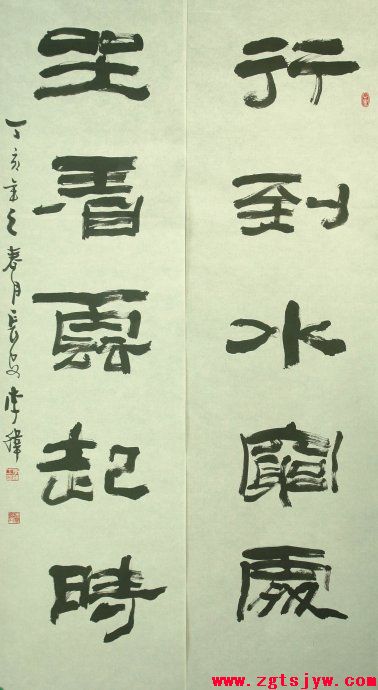 行到水窮處
坐看雲起時
丁亥年之春月長安李
www.zgtsjyw.com